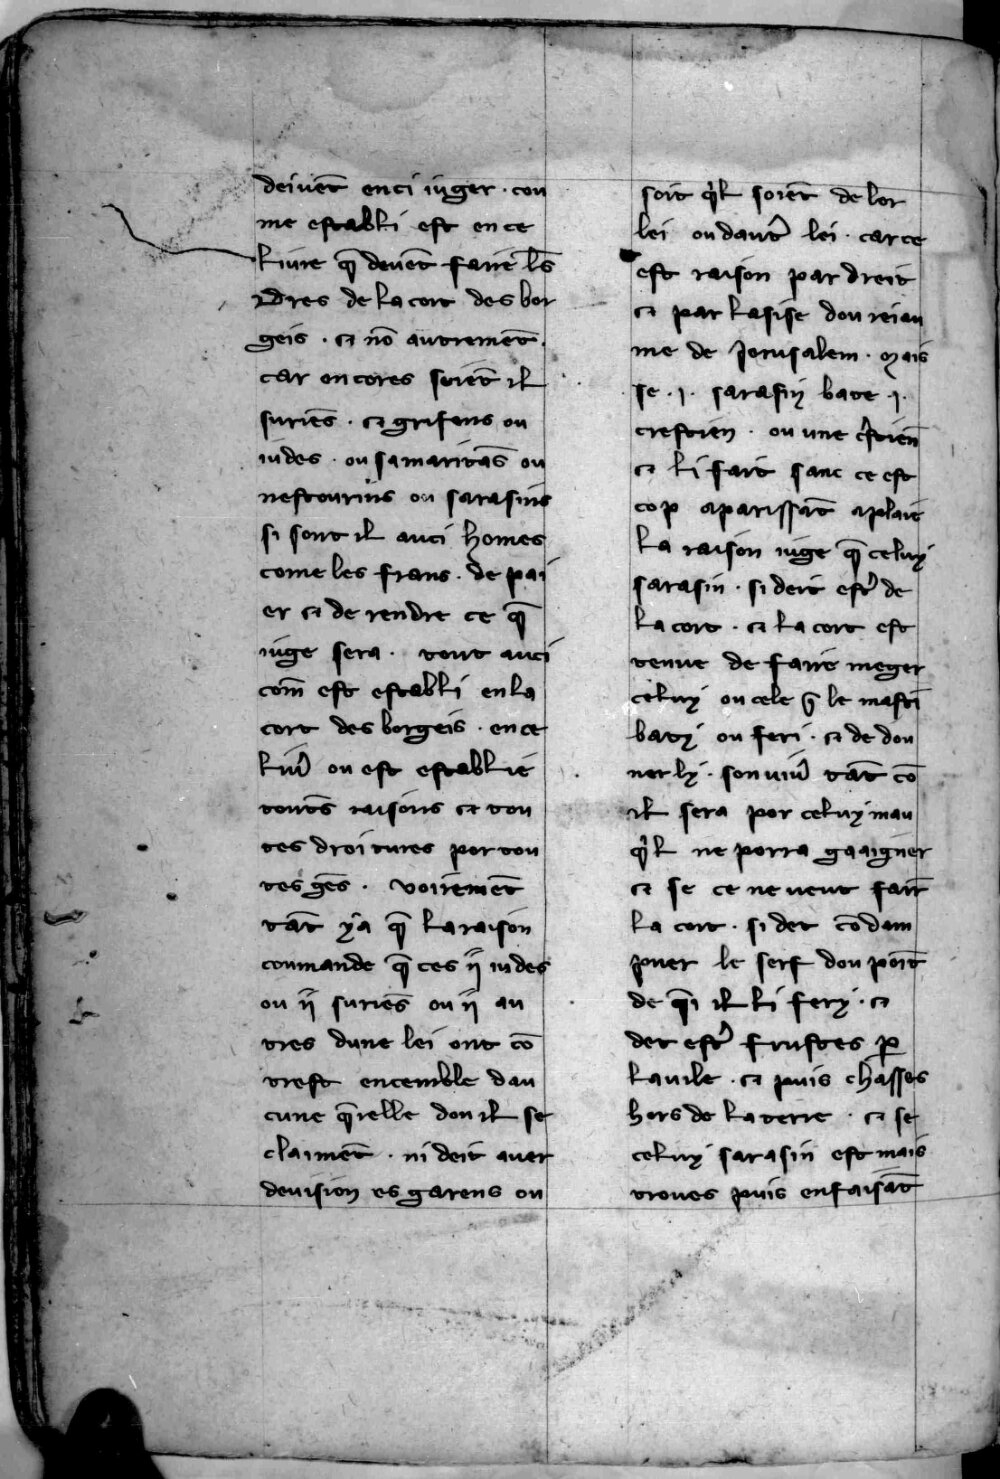 deiuẽt enci iuger · con
me establi est en ce
liure q̃ deuẽt faire les̃
iures de la cort des bor
geis · ⁊ nõ autremẽt ·
car encores soiẽt il
suriẽs · ⁊ grifons ou
iudes · ou samaritãs ou
nestourins ou sarasins
si sont il auci homes
come les frans · de pai
er ⁊ de rendre ce q̃
iuge sera · tout auci
com̃ est establi en la
cort des borgeis · en ce
liur̾ ou est establie
toutes̃ raisons ⁊ tou
tes droitures por tou
tes gẽs · voiremẽt
tãt ya q̃ la raison
coumande q̃ ces ij iudes
ou ij suriẽs ou ij au
tres dune lei ont cõ
trest encemble dau
cune q̃relle don il se
claimẽt · ni deit auer
deuision es garens ou
soit q̾l soiẽt de lor
lei ou daut̾ lei · car ce
est raison par dreit
⁊ par lasise dou reiau
me de Jerusalem · Mais
se · j · sarasin bate · j ·
crestien · ou une c̾stiẽn
⁊ li fait sanc ce est
cop aparissãt aplaié
la raison iuge q̃ celuy
sarasin · si deit est̾ de
la cort · ⁊ la cort est
tenue de faire meger
celuy ou cele q̃ le mastĩ
baty ou feri · ⁊ de don
ner ly · son uiur̾ tãt cõ
il sera por celuy mau
q̾l ne porra gaaigner
⁊ se ce ne veut fair̃
la cort · si det cõdam
pner le serf dou poĩt
de q̃i il li fery · ⁊
det est̾ frustes p̱
la uile · ⁊ puis chasses
hors de la terre · ⁊ se
celuy sarasin est mais
troues puis enfaisãt